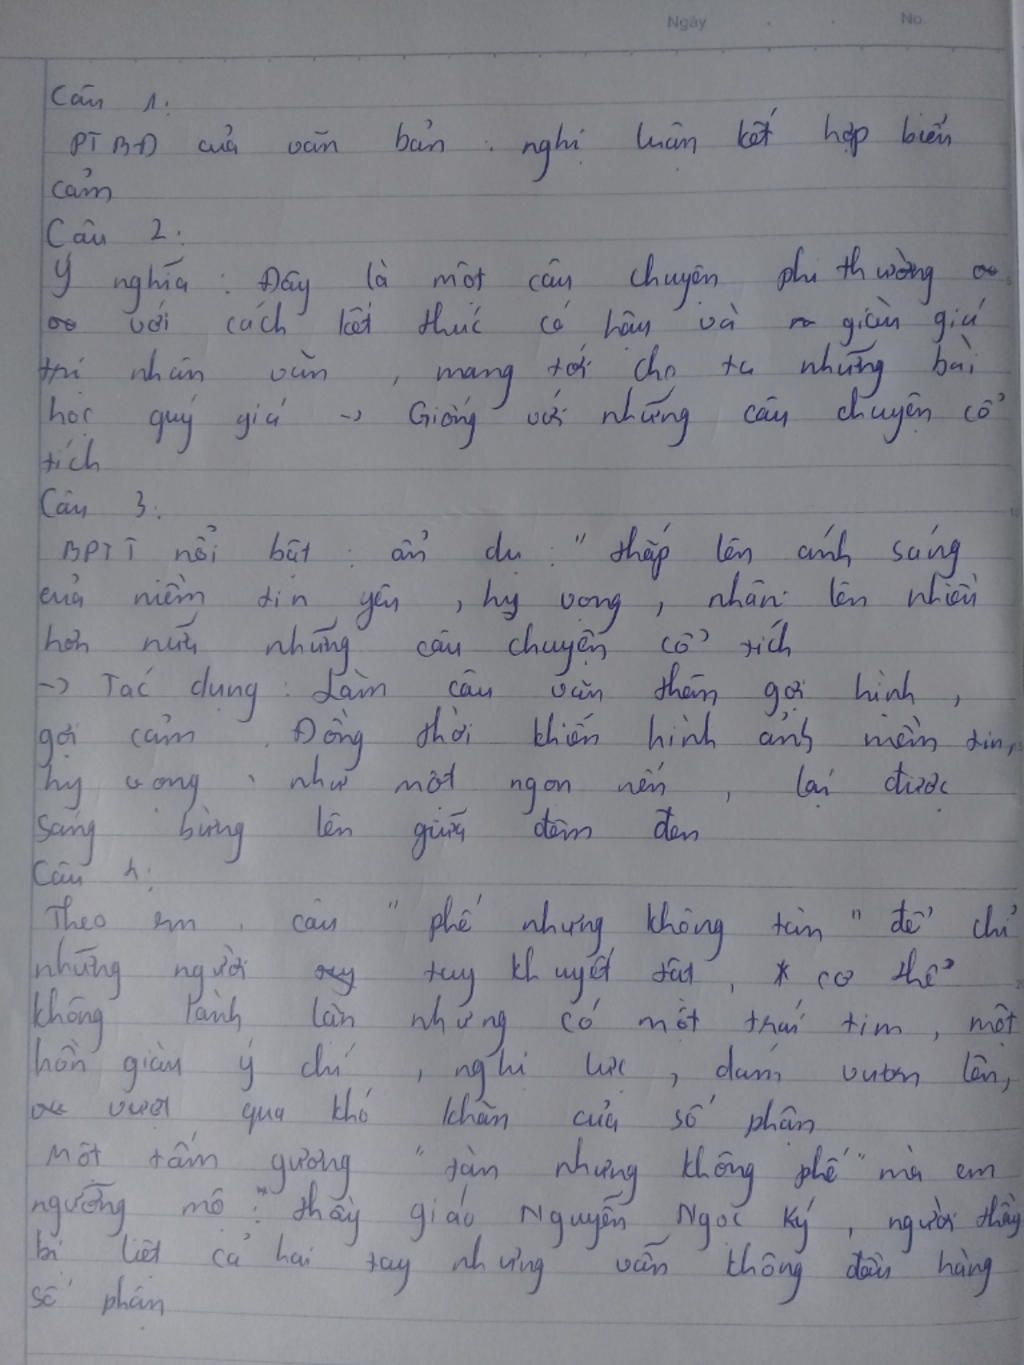 Ngày No.
Câu 1:
PTBĐ của văn bản : nghị luận kết hợp biến
cảm
Câu 2:
Ý nghĩa : Đây là một câu chuyện phi thường
với cách kết thúc có hậu và giàu giá
trị nhân văn , mang tới cho ta những bài
học quý giá -> Giống với những câu chuyện cổ
tích
Câu 3:
BPTT nổi bật : ẩn dụ : " thắp lên ánh sáng
của niềm tin yêu , hy vọng , nhân lên nhiều
hơn nữa những câu chuyện cổ tích
-> Tác dụng : Làm câu văn thêm gợi hình ,
gợi cảm . Đồng thời khiến hình ảnh niềm tin,
hy vọng như một ngọn nến , lại được
sáng bừng lên giữa đêm đen
Câu 4:
Theo em , câu " phế nhưng không tàn " để chỉ
những người tuy khuyết tật , cơ thể
không lành lặn nhưng có một trái tim , một
hồn giàu ý chí , nghị lực , dám vươn lên,
vượt qua khó khăn của số phận
Một tấm gương " tàn nhưng không phế " mà em
ngưỡng mộ : thầy giáo Nguyễn Ngọc Ký , người thầy
bị liệt cả hai tay nhưng vẫn không đầu hàng
số phận